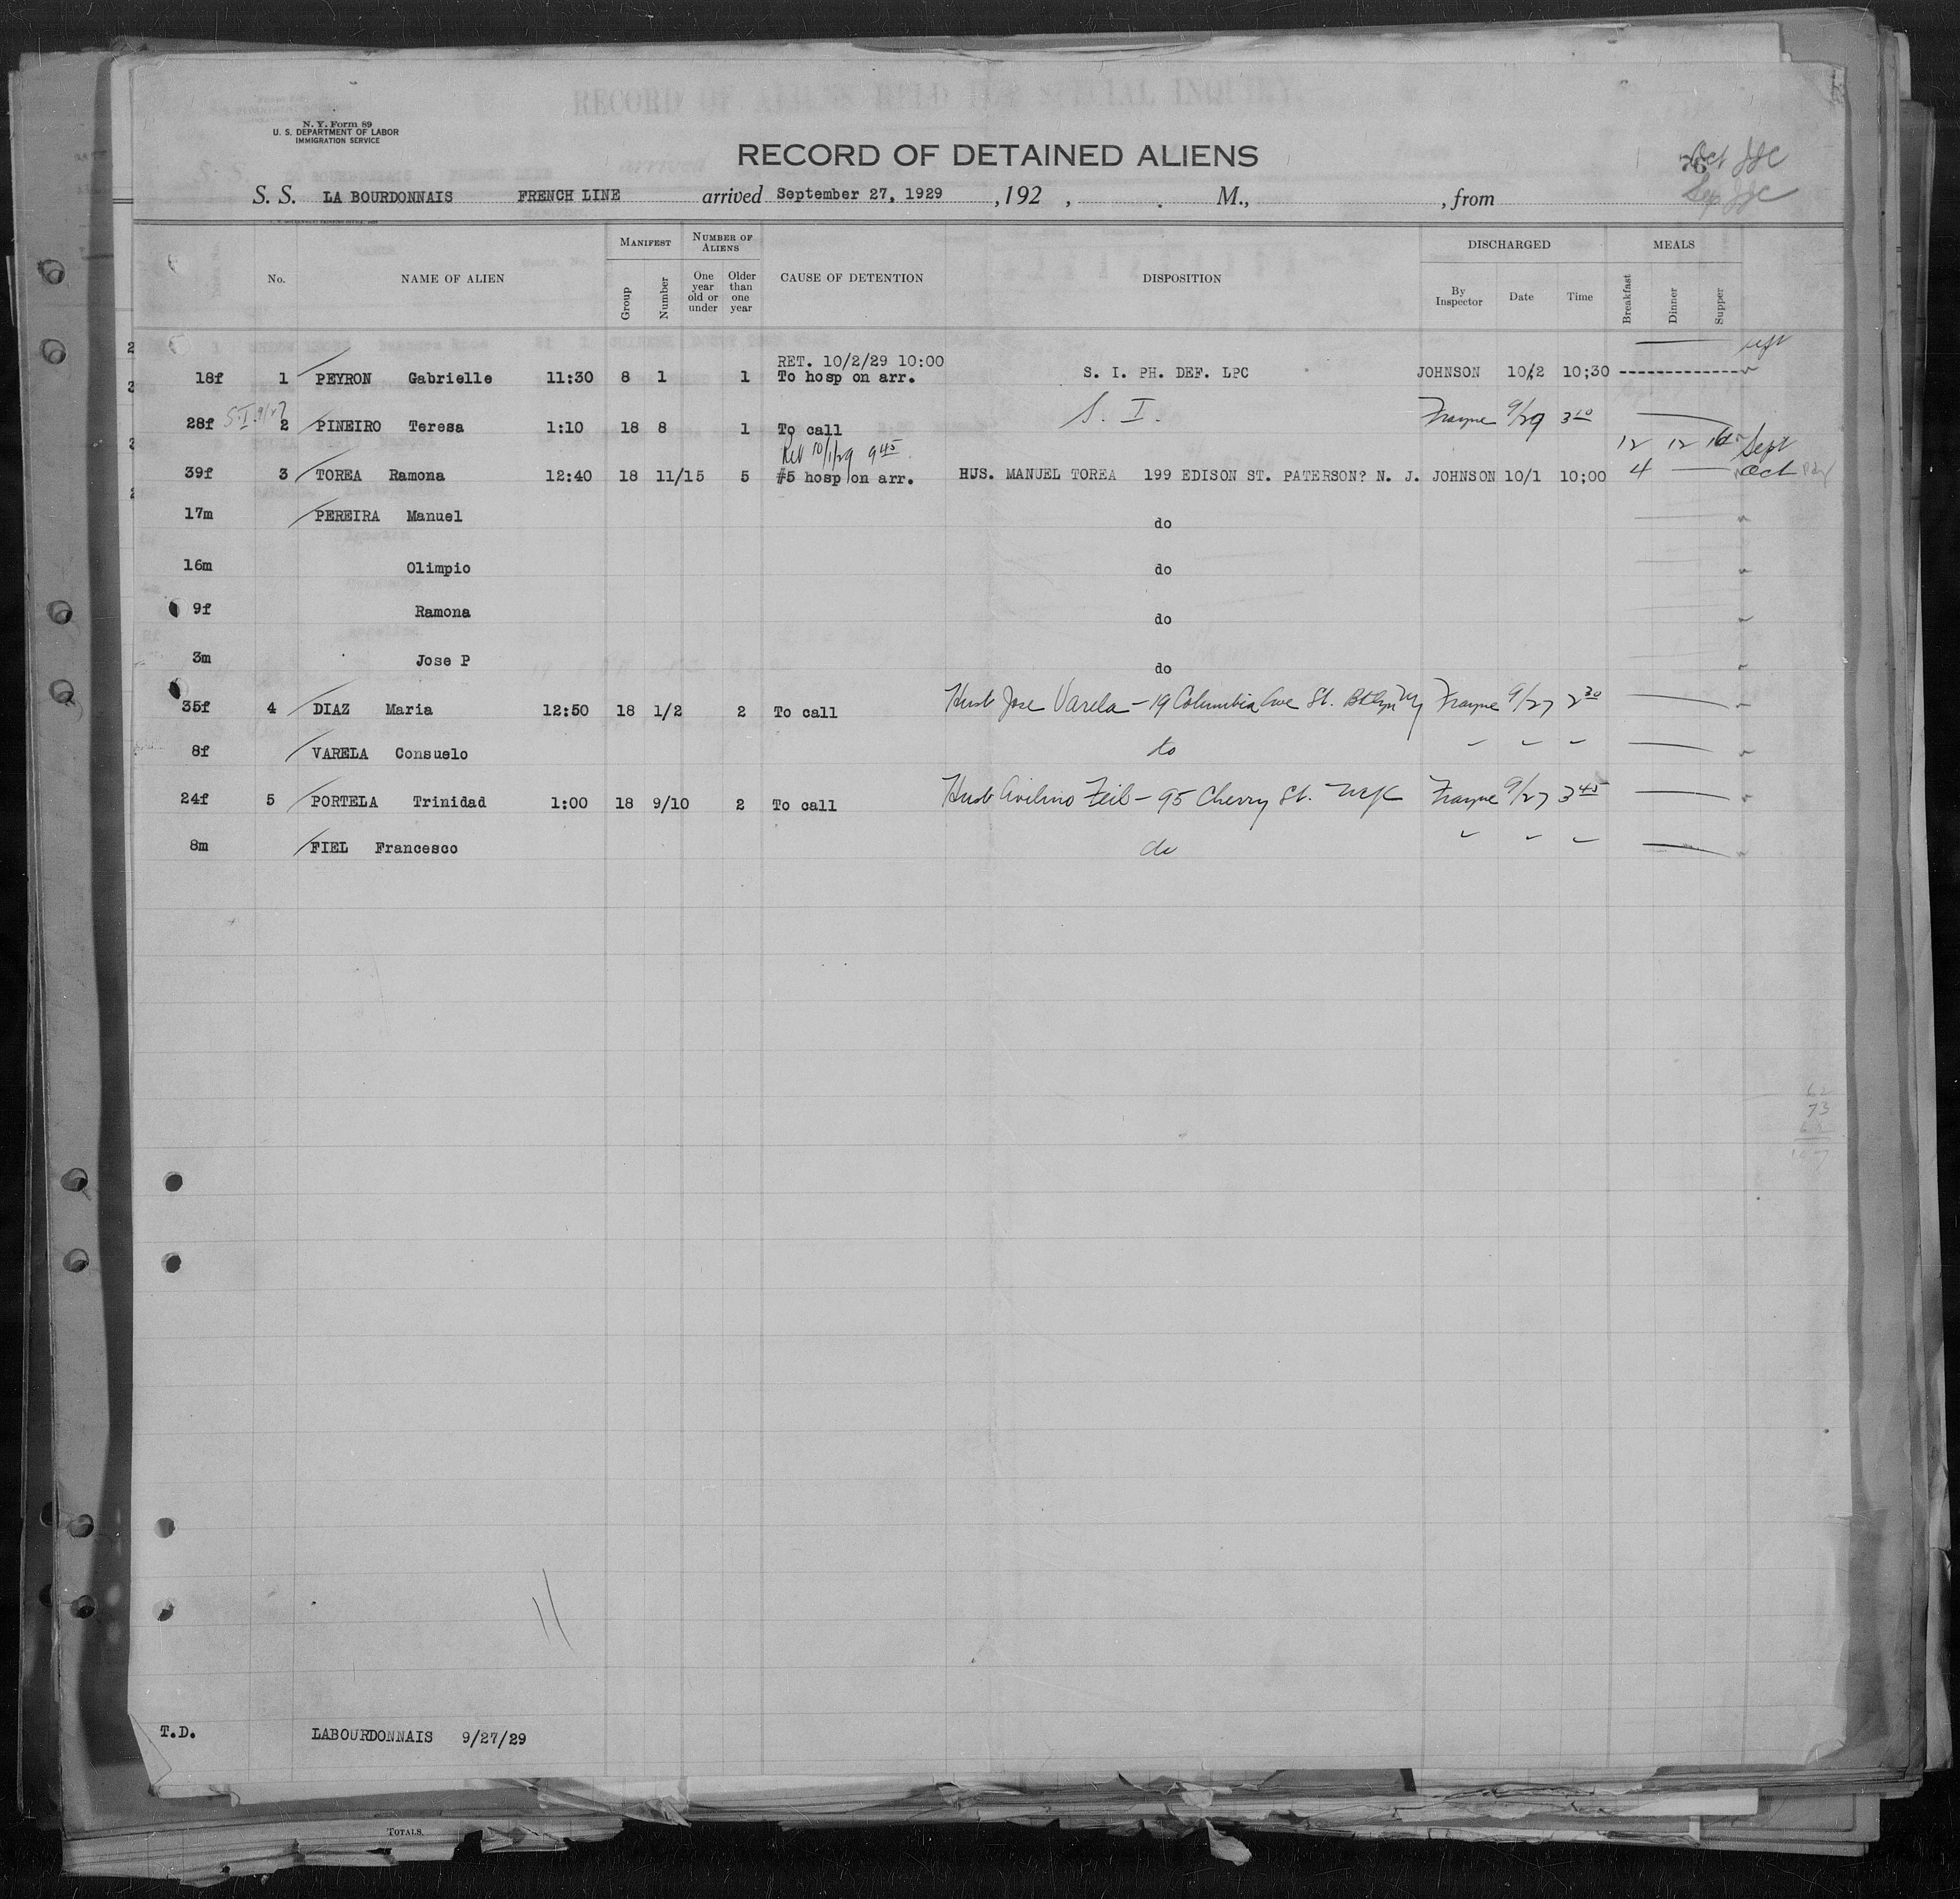 N. Y. Form 89
U. S. DEPARTMENT OF LABOR
IMMIGRATION SERVICE
RECORD OF DETAINED ALIENS
76
Oct JJC
Sep JJC
S. S. LA BOURDONNAIS FRENCH LINE arrived September 27, 1929, 192 , . M., , from
No. NAME OF ALIEN MANIFEST Group Number NUMBER OF ALIENS One year old or under Older than one year CAUSE OF DETENTION DISPOSITION DISCHARGED By Inspector Date Time MEALS Breakfast Dinner Supper
RET. 10/2/29 10:00 Sept
18f 1 PEYRON Gabrielle 11:30 8 1 1 To hosp on arr. S. I. PH. DEF. LPC JOHNSON 10/2 10;30
28f S.I. 9/27 2 PINEIRO Teresa 1:10 18 8 1 To call S. I. Frayne 9/29 3 10
Ret 10/1/29 9 45 12 12 16 Sept
39f 3 TOREA Ramona 12:40 18 11/15 5 #5 hosp on arr. HUS. MANUEL TOREA 199 EDISON ST. PATERSON? N. J. JOHNSON 10/1 10:00 4 — Oct
17m PEREIRA Manuel do
16m Olimpio do
9f Ramona do
3m Jose P do
35f 4 DIAZ Maria 12:50 18 1/2 2 To call Husb Jose Varela - 19 Columbia Ave St. Bklyn NY Frayne 9/27 2 30
8f VARELA Consuelo do
24f 5 PORTELA Trinidad 1:00 18 9/10 2 To call Husb Avelino Feil - 95 Cherry St. NYC Frayne 9/27 3 45
8m FIEL Francesco do
73
T.D. LABOURDONNAIS 9/27/29
TOTALS